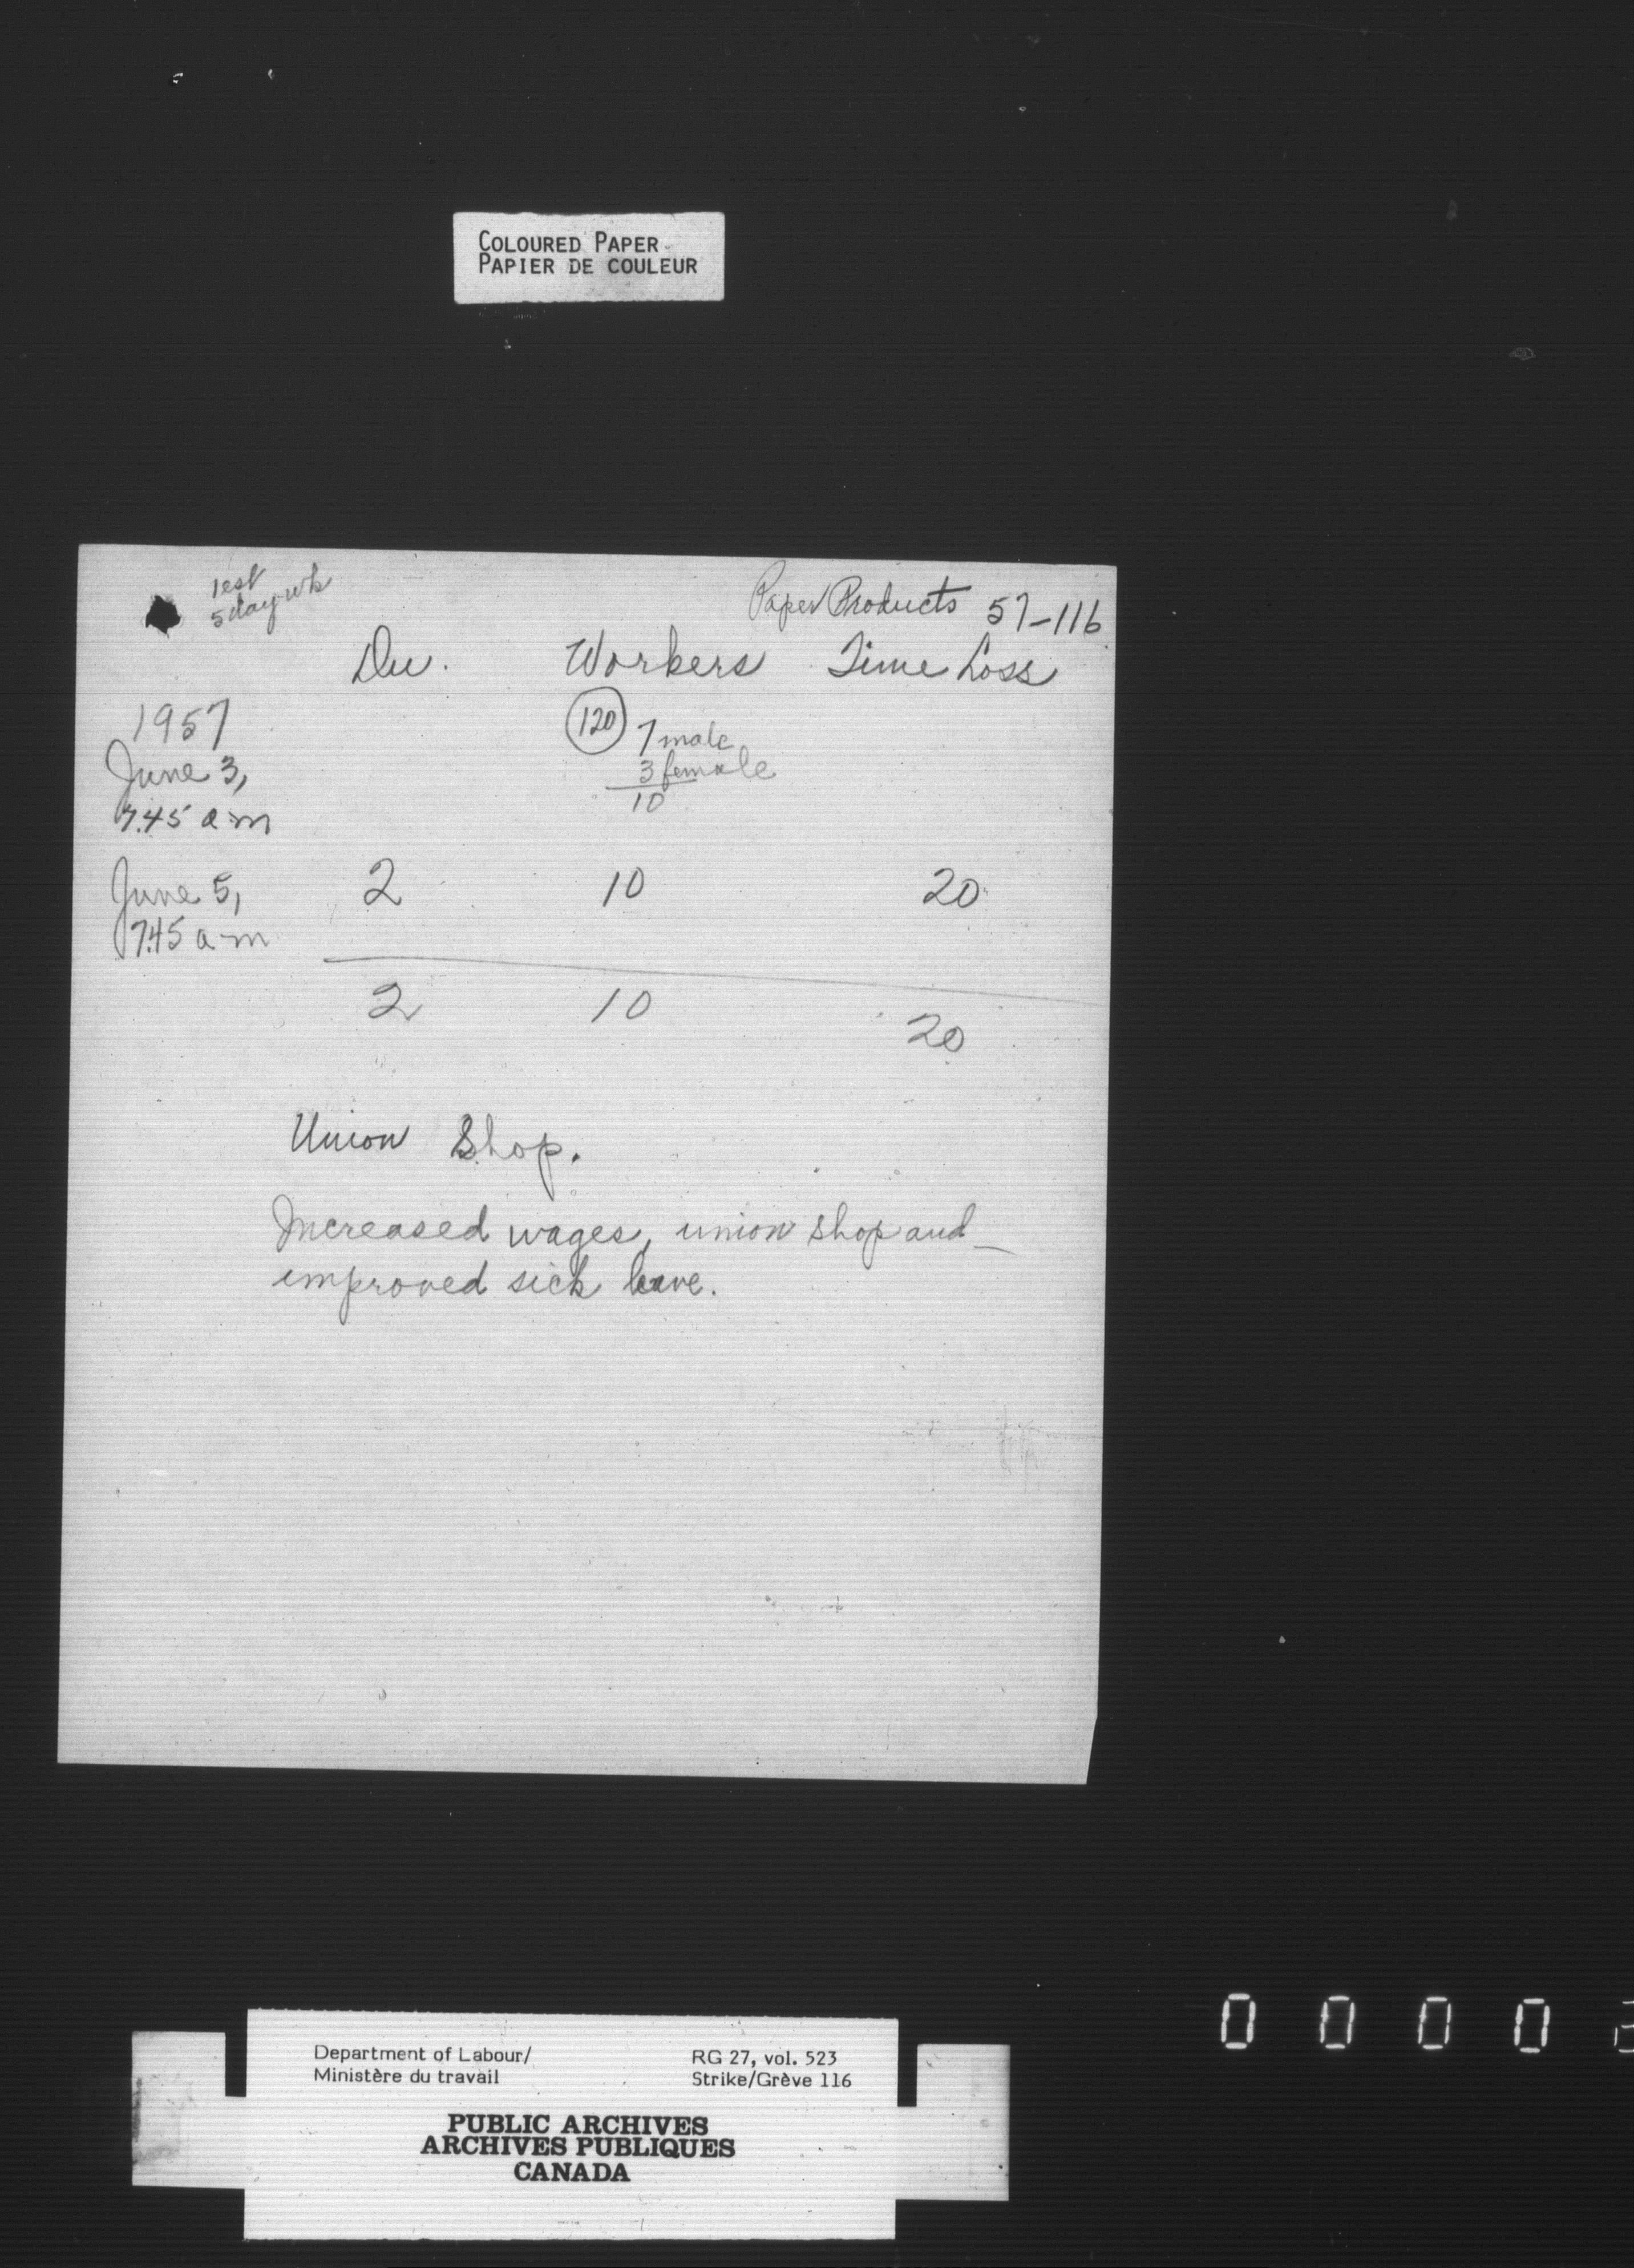 COLOURED PAPER
PAPIER DE COULEUR
1 est
5 day wk
Paper Products 57-116
Du. Workers Time Loss
1957
120 7 male
June 3, 3 female
7.45 a.m 10
June 5, 2 10 20
7.45 a-m
2 10 20
Union Shop.
Increased wages, union shop and
improved sick leave.
0 0 0 0
Department of Labour/ RG 27, vol. 523
Ministère du travail Strike/Grève 116
PUBLIC ARCHIVES
ARCHIVES PUBLIQUES
CANADA